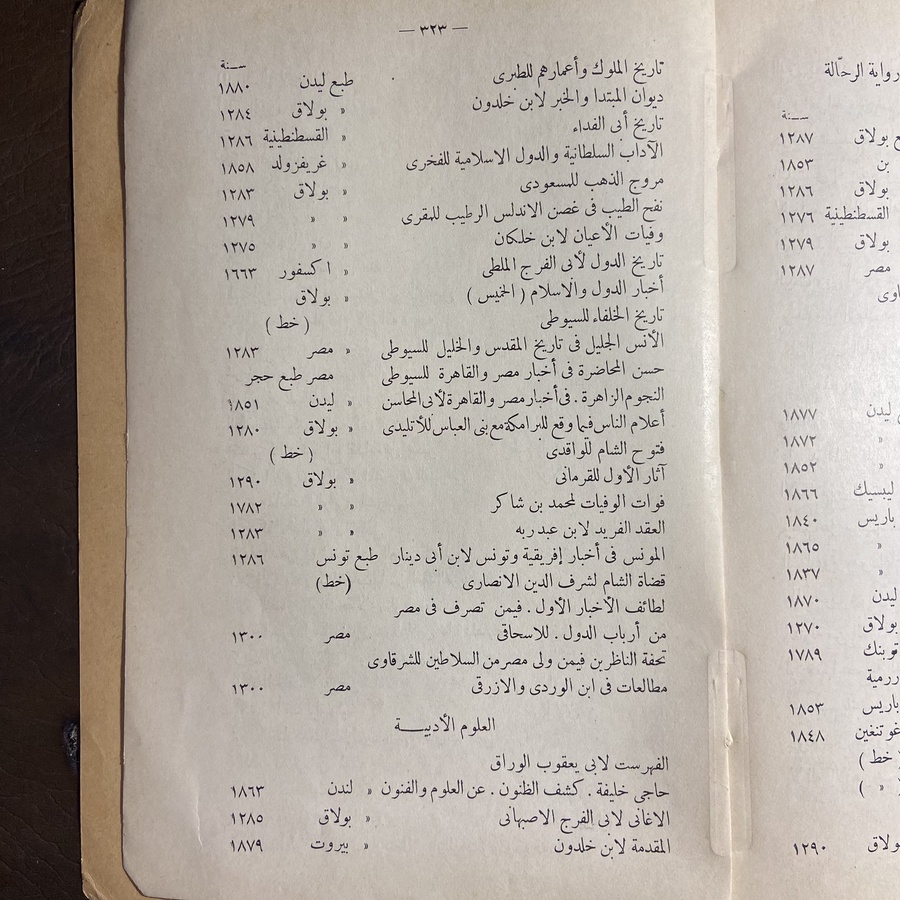 — ٣٢٣ —
ســنة
تاريخ الملوك وأعمارهم للطبرى طبع ليدن ١٨٨٠
ديوان المبتدا والخبر لابن خلدون » بولاق ١٢٨٤
تاريخ أبى الفداء » القسطنطينية ١٢٨٦
الآداب السلطانية والدول الاسلامية للفخرى » غريفزولد ١٨٥٨
مروج الذهب للمسعودى » بولاق ١٢٨٣
نفح الطيب فى غصن الاندلس الرطيب للمقرى » » ١٢٧٩
وفيات الأعيان لابن خلكان » » ١٢٧٥
تاريخ الدول لأبى الفرج الملطى » اكسفور ١٦٦٣
أخبار الدول والاسلام ( الخميس ) » بولاق
تاريخ الخلفاء للسيوطى ( خط )
الأنس الجليل فى تاريخ المقدس والخليل للسيوطى » مصر ١٢٨٣
حسن المحاضرة فى أخبار مصر والقاهرة للسيوطى مصر طبع حجر
النجوم الزاهرة . فى أخبار مصر والقاهرة لأبى المحاسن » ليدن ١٨٥١
أعلام الناس فيما وقع للبرامكة مع بنى العباس للأتليدى » بولاق ١٢٨٠
فتوح الشام للواقدى ( خط )
آثار الأول للقرمانى » بولاق ١٢٩٠
فوات الوفيات لمحمد بن شاكر » » ١٧٨٢
العقد الفريد لابن عبد ربه » » ١٢٨٣
المونس فى أخبار إفريقية وتونس لابن أبى دينار طبع تونس ١٢٨٦
قضاة الشام لشرف الدين الانصارى (خط)
لطائف الأخبار الأول . فيمن تصرف فى مصر
من أرباب الدول . للاسحاقى مصر ١٣٠٠
تحفة الناظرين فيمن ولى مصر من السلاطين للشرقاوى
مطالعات فى ابن الوردى والازرقى مصر ١٣٠٠
العلوم الأدبيــــة
الفهرست لابى يعقوب الوراق
حاجى خليفة . كشف الظنون . عن العلوم والفنون » لندن ١٨٦٣
الاغانى لابى الفرج الاصبهانى » بولاق ١٢٨٥
المقدمة لابن خلدون » بيروت ١٨٧٩
رواية الرحّالة
ســنة
بولاق ١٢٨٧
بن ١٨٥٣
بولاق ١٢٨٦
القسطنطينية ١٢٧٦
بولاق ١٢٧٩
مصر ١٢٨٧
ليدن ١٨٧٧
» ١٨٧٢
» ١٨٥٢
ليبسيك ١٨٦٦
باريس ١٨٤٠
» ١٨٦٥
» ١٨٣٧
ليدن ١٨٧٠
بولاق ١٢٧٠
توبنك ١٧٨٩
باريس ١٨٥٣
غوتنغين ١٨٤٨
خط )
» )
بولاق ١٢٩٠